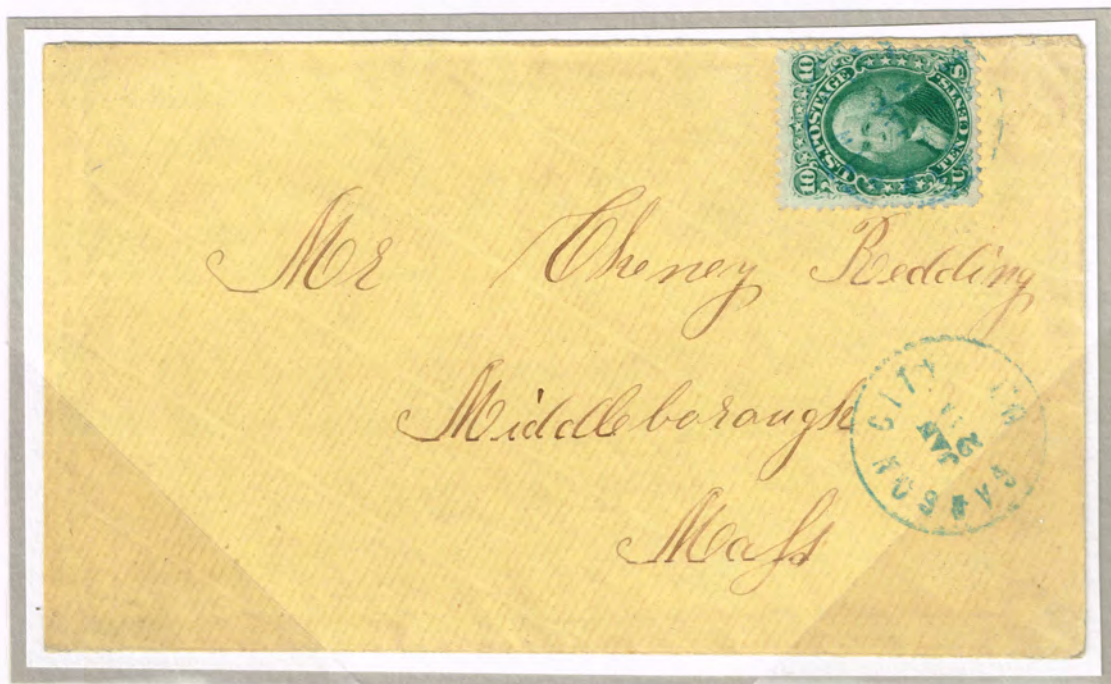 10 U.S. POSTAGE 10
U TEN CENTS. S
Mr Cheney Redding
Middleborough
Mass
CARSON CITY
JAN